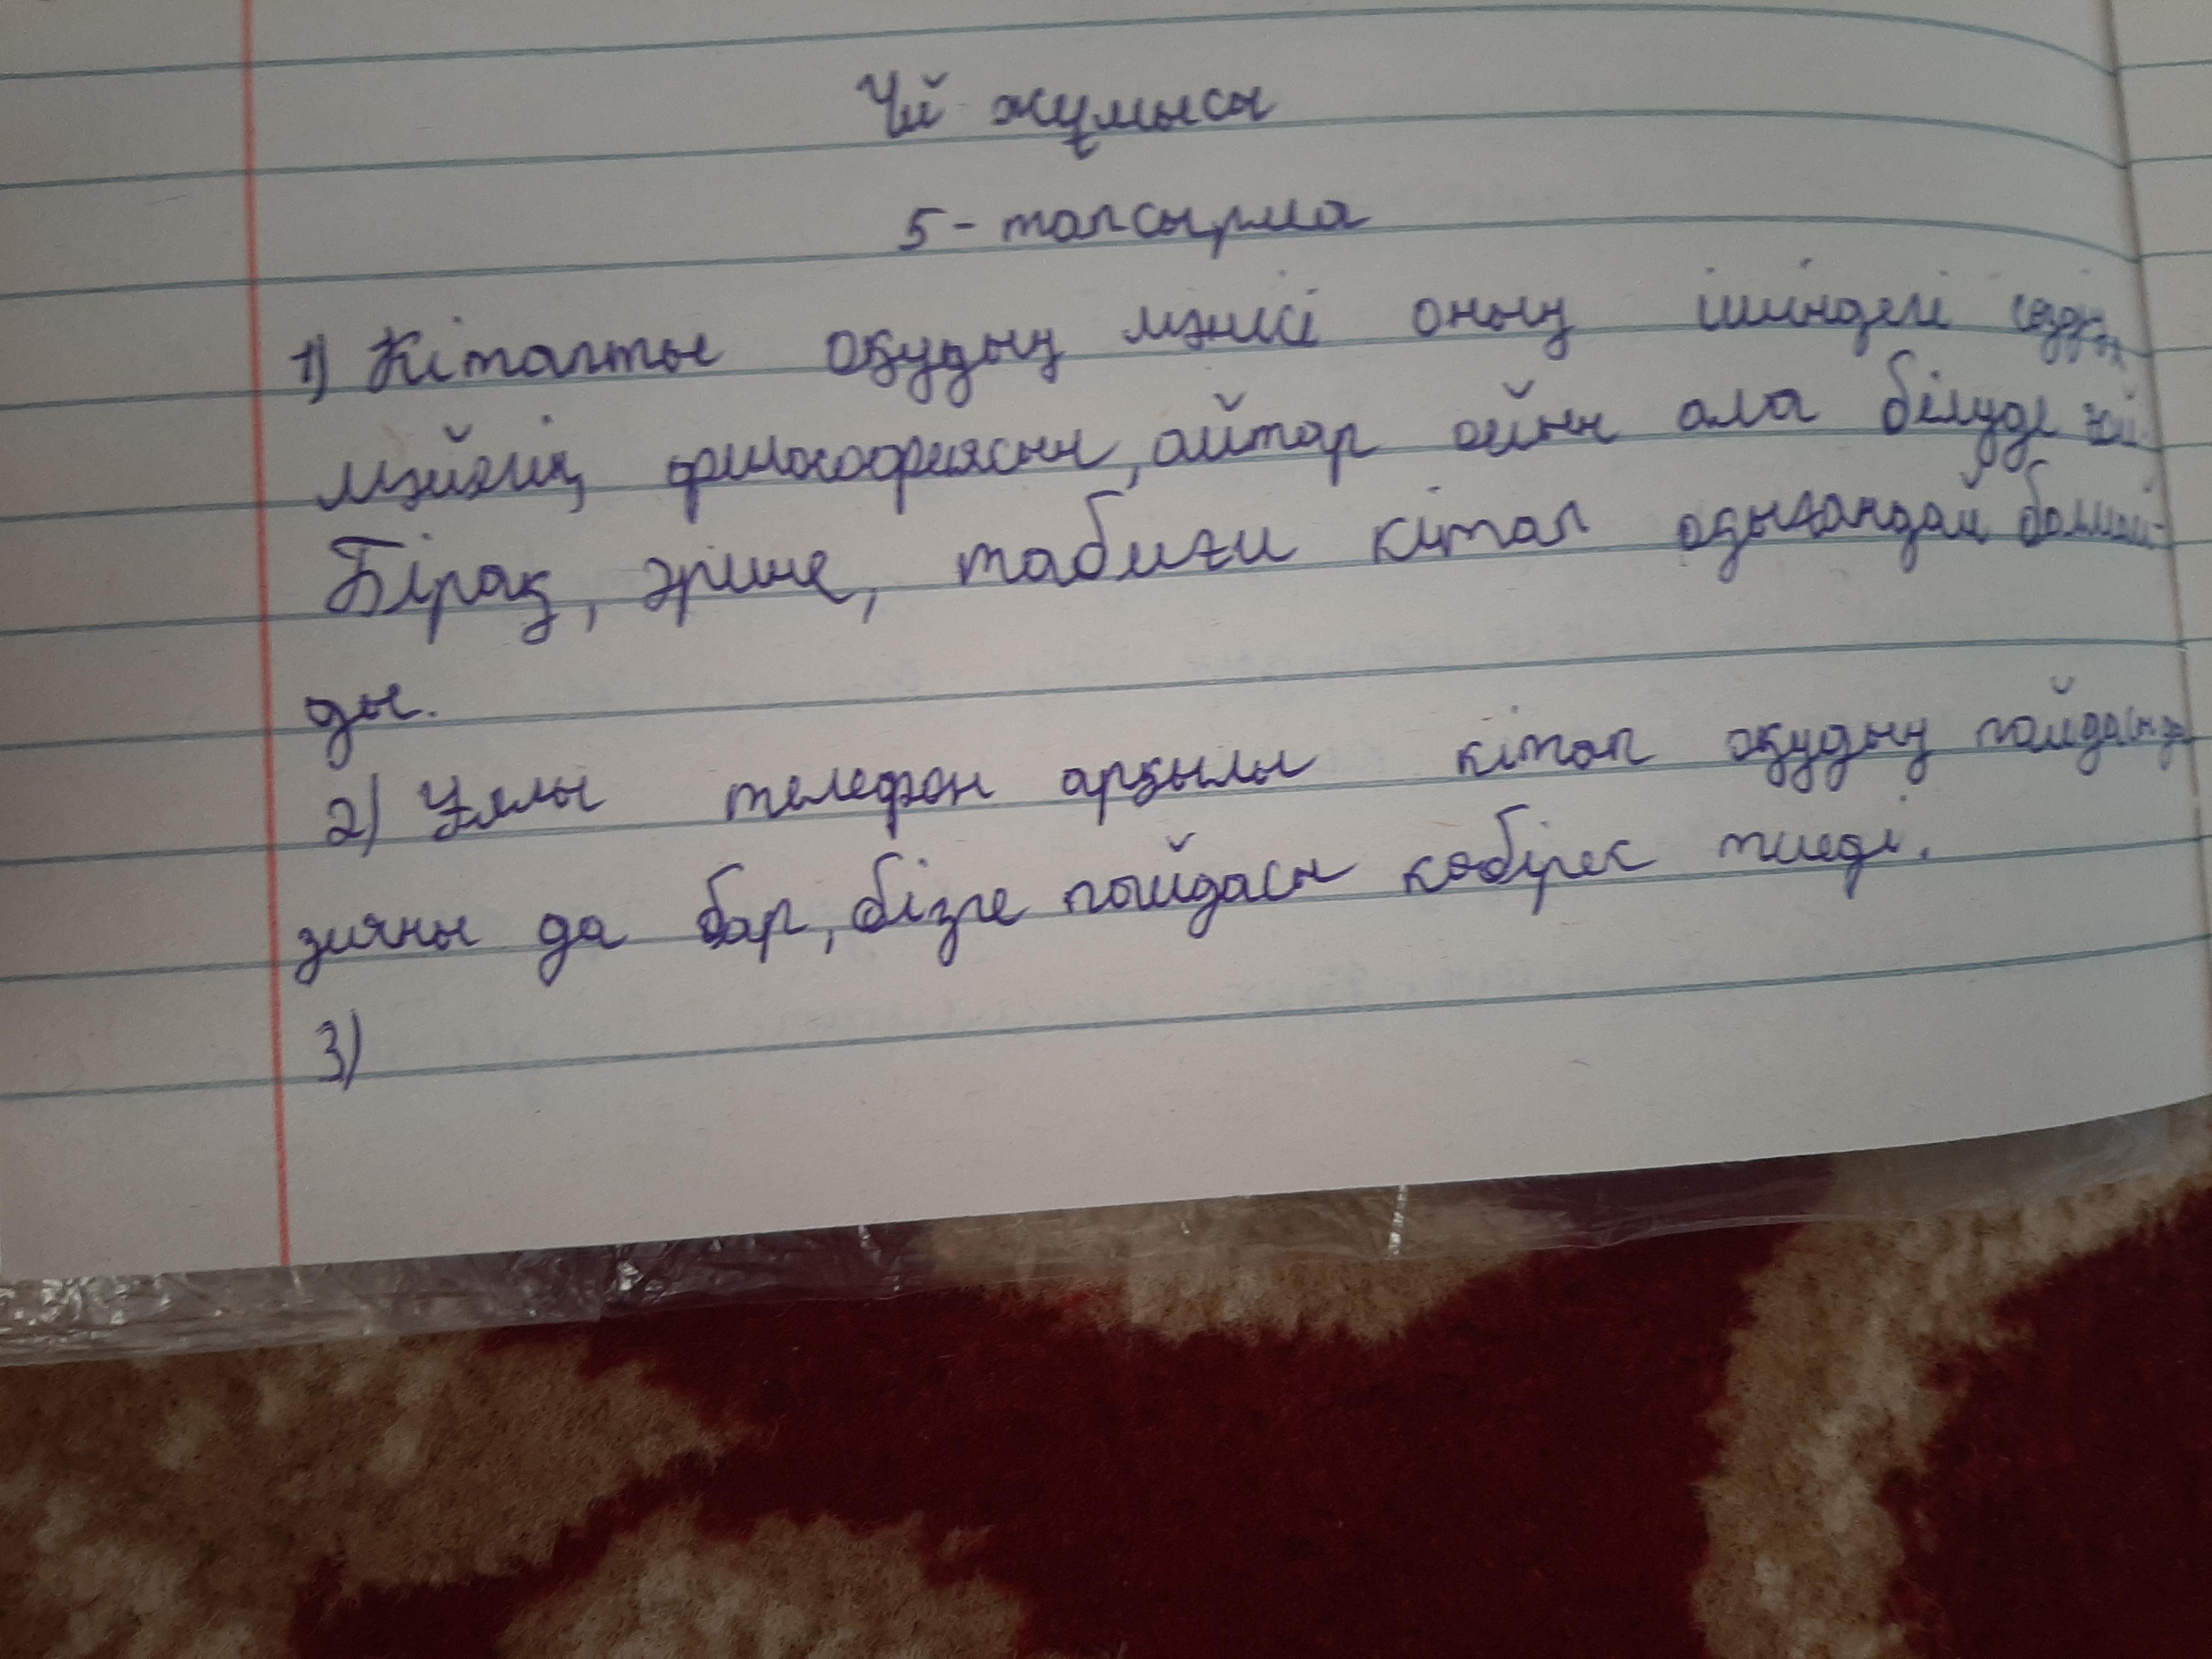 Үй жұмысы
5-тапсырма
1) Кітапты оқудың мәнісі оның ішіндегі
философиясын, айтар ойын ала білуде
Бірақ, әрине, табиғи кітап оқығандай болмай-
ды.
2) Ұялы телефон арқылы кітап оқудың
зияны да бар, бізге пайдасы көбірек тиеді.
3)